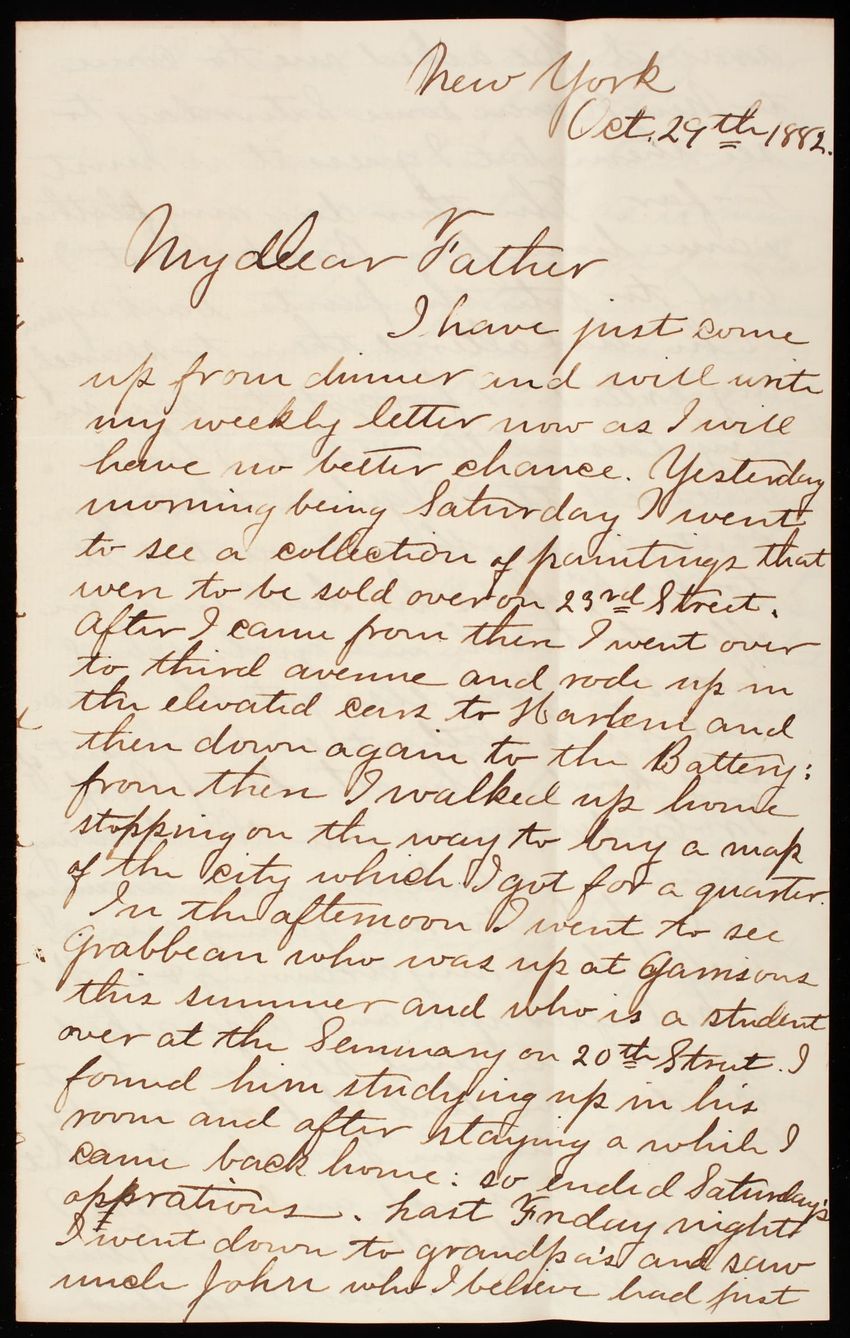 New York
Oct. 29th 1882.
My dear Father
I have just come
up from dinner and will write
my weekly letter now as I will
have no better chance. Yesterday
morning being Saturday I went
to see a collection of paintings that
were to be sold over on 23rd Street.
After I came from there I went over
to third avenue and rode up in
the elevated cars to Harlem and
then down again to the Battery:
from there I walked up home
stopping on the way to buy a map
of the city which I got for a quarter.
In the afternoon I went to see
Grabbeau who was up at Garrisons
this summer and who is a student
over at the Seminary on 20th Street. I
found him studying up in his
room and after staying a while I
came back home: so ended Saturday's
opperations. Last Friday night
I went down to grandpa's and saw
uncle John who I believe had just